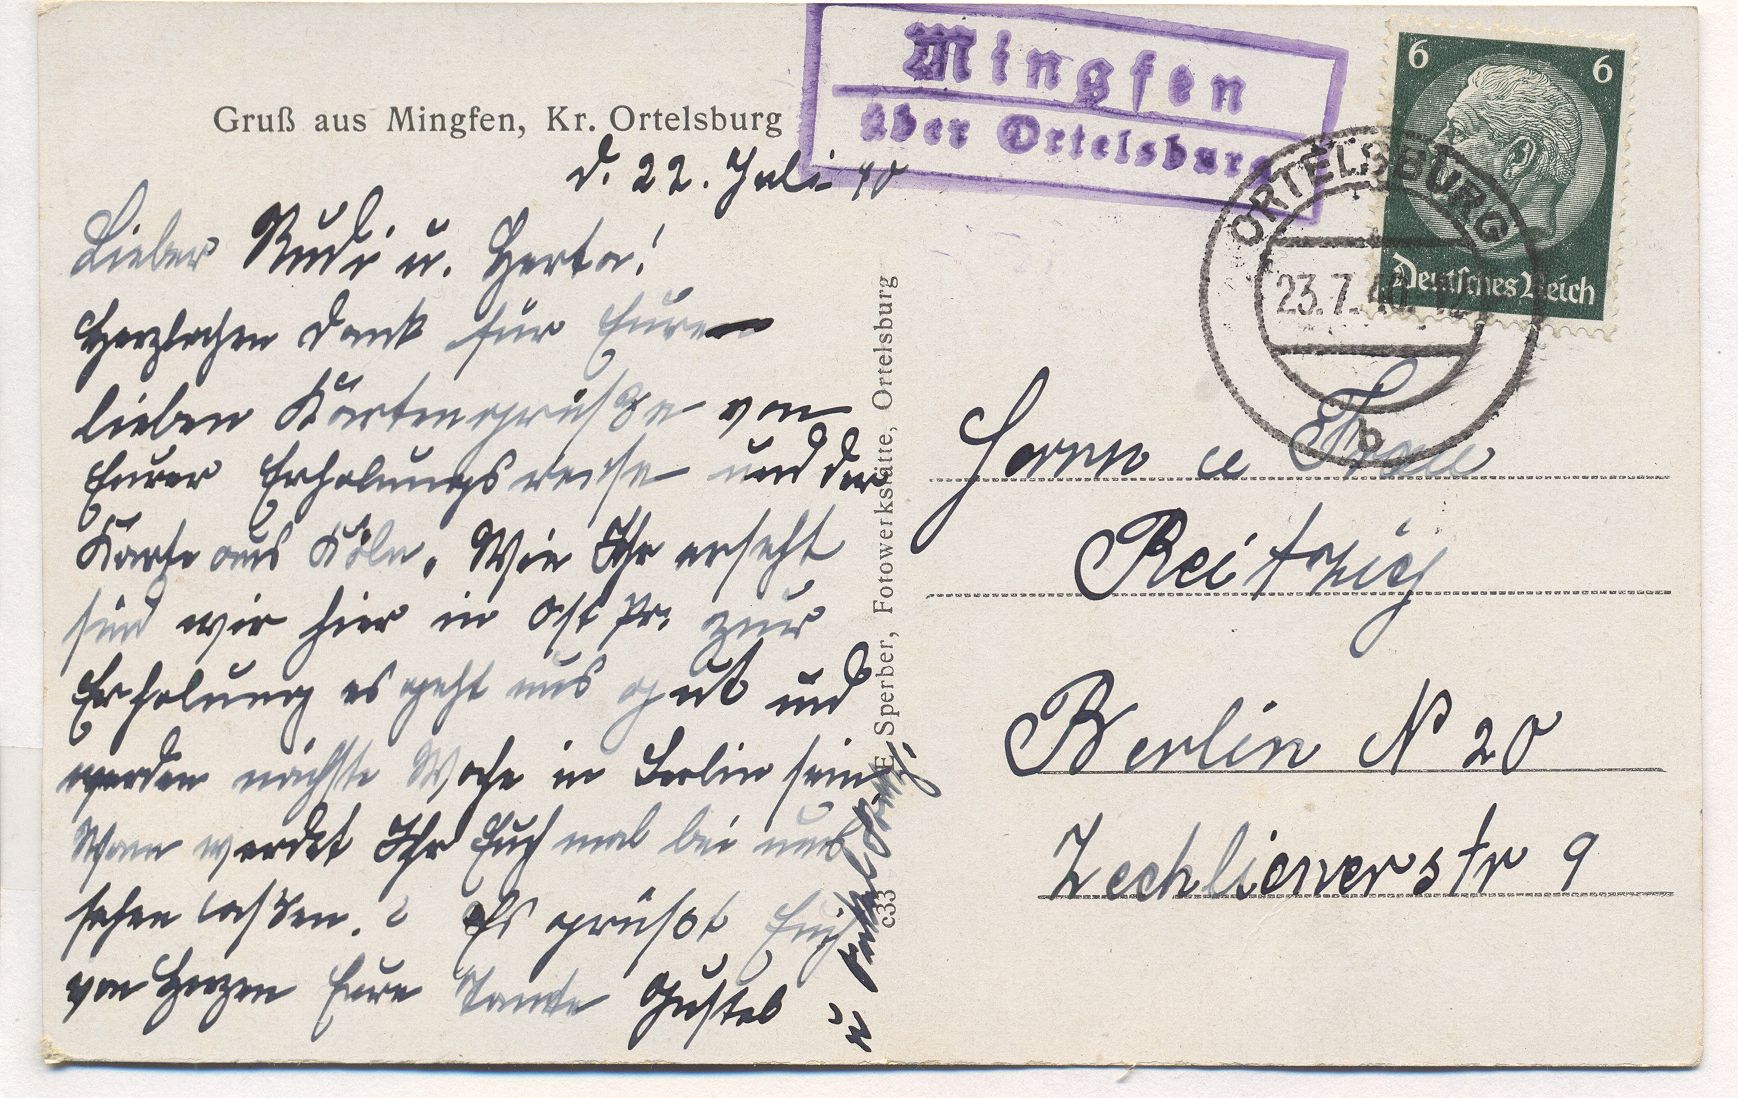 Gruß aus Mingfen, Kr. Ortelsburg
Mingfen
über Ortelsburg
6 6
Deutsches Reich
ORTELSBURG
23.7.40. 12
b
d. 22. Juli 40
Lieber Rudi u. Herta!
Herzlichen Dank für Eure
lieben Kartengrüße von
Eurer Erholungsreise und der
Karte aus Köln. Wie Ihr erseht
sind wir hier in Ost Pr. zur
Erholung es geht uns gut und
werden nächste Woche in Berlin sein
Wann werdet Ihr Euch mal bei uns
sehen laßen.? Es grüßt Euch
von Herzen Eure Tante Gustel
u
E. Sperber, Fotowerkstätte, Ortelsburg
c33
Herrn u Frau
Reitzig
Berlin N 20
Zechlienerstr 9